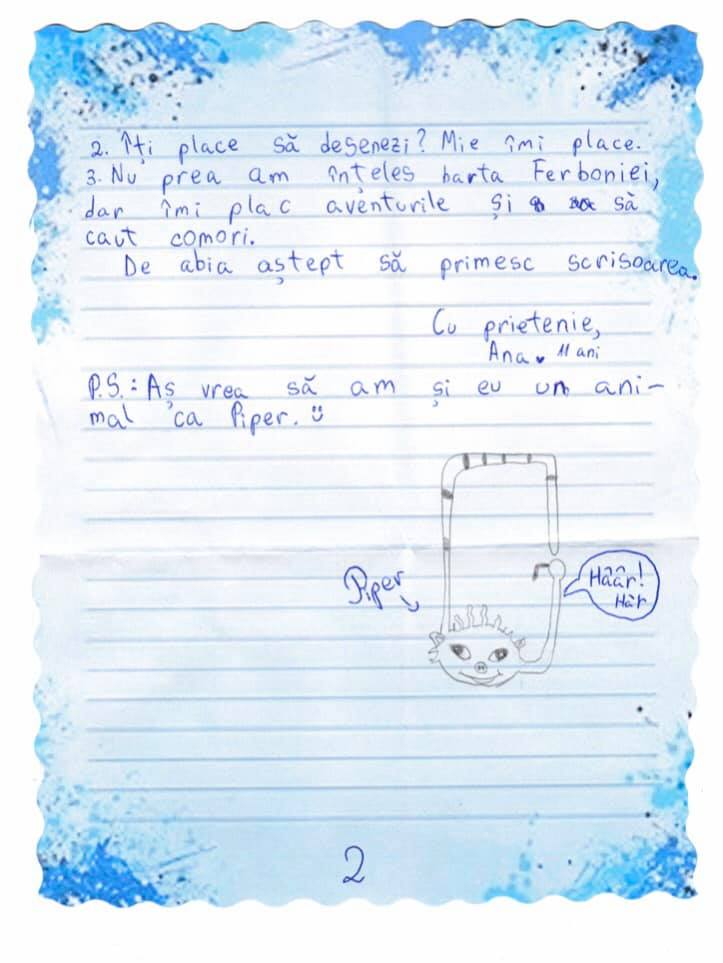 2. Îți place să desenezi? Mie îmi place.
3. Nu prea am înțeles harta Ferboniei,
dar îmi plac aventurile și să
caut comori.
De abia aștept să primesc scrisoarea.
Cu prietenie,
Ana ♥ 11 ani
P.S.: Aș vrea să am și eu un ani-
mal ca Piper. ü
Piper
Hââr!
Hâr
2